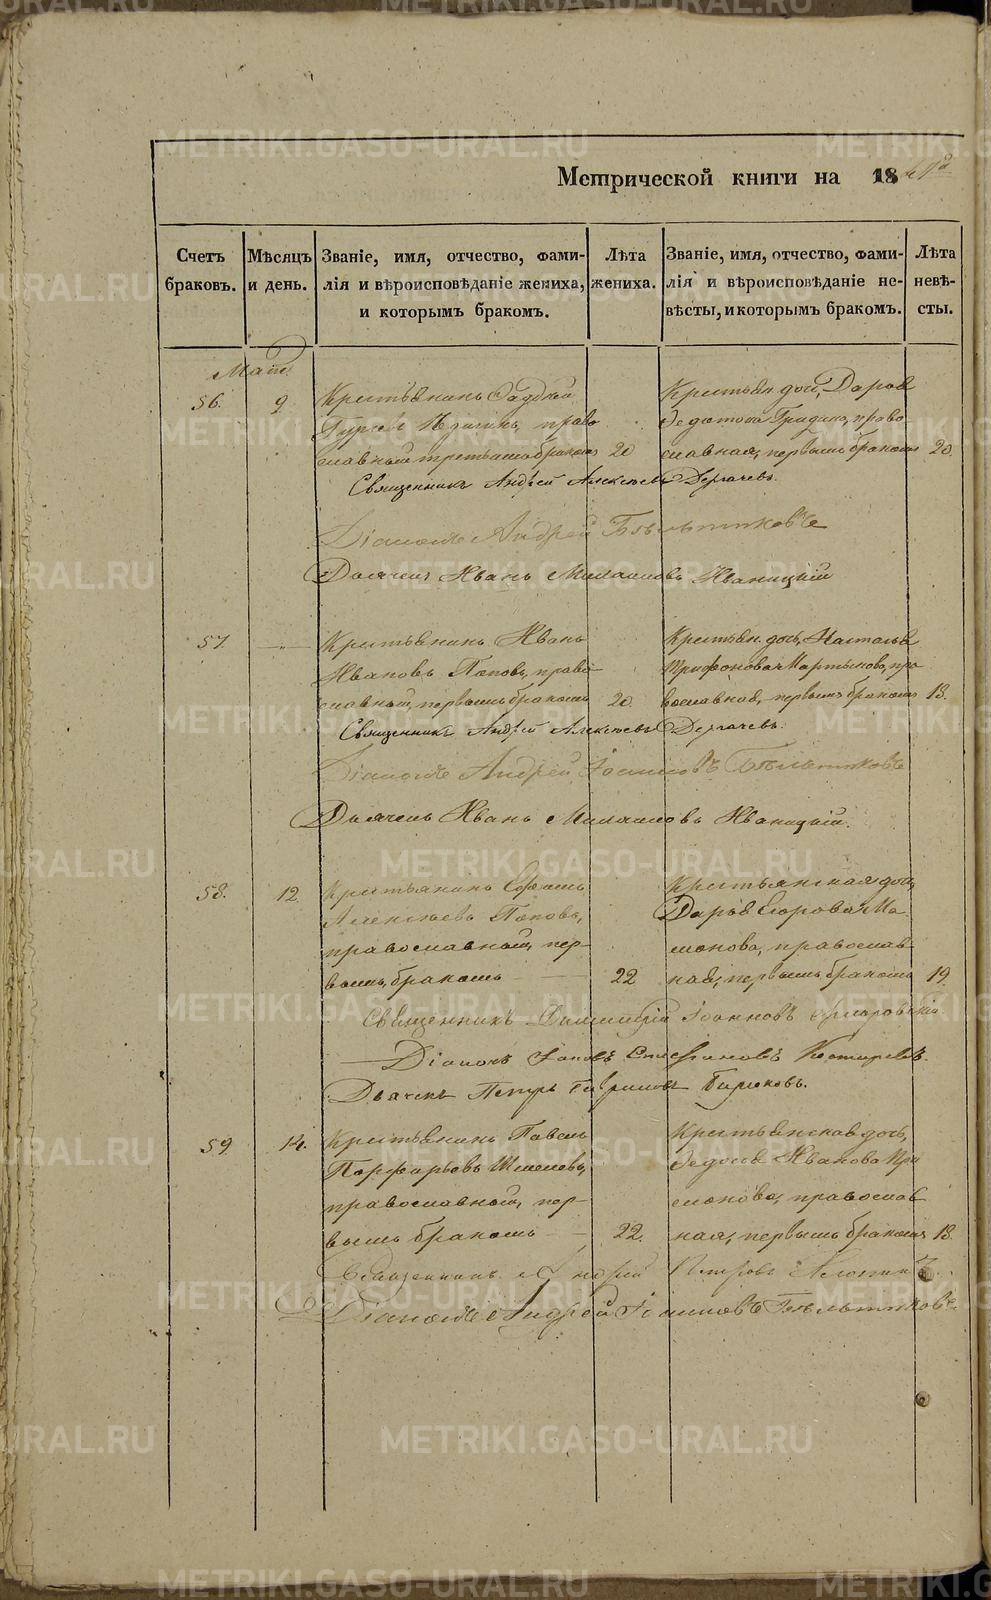 Метрической книги на 18
Счетъ браковъ.
Мѣсяцъ и день.
Званіе, имя, отчество, фами-
лія и вѣроисповѣданіе жениха,
и которымъ бракомъ.
Лѣта
жениха.
Званіе, имя, отчество, фами-
лія и вѣроисповѣданіе не-
вѣсты, и которымъ бракомъ.
Лѣта
невѣ-
сты.
Маій
56. 9 Крестьянинъ
право
славный третьимъ бракомъ 20
Крестьян. дочь, Дарья
Федотова право
славная, первымъ бракомъ 20.
Священникъ Андрей Алексѣевъ Дергачевъ.
Діаконъ Андрей Бѣльтиковъ
Дьячекъ Иванъ Иваницкій
57. Крестьянинъ Иванъ
Ивановъ Поповъ, право
славный, первымъ бракомъ 20.
Крестьян. дочь, Наталья
Трифонова Мартынова, пра
вославная, первымъ бракомъ 18.
Священникъ Андрей Алексѣевъ Дергачевъ.
Діаконъ Андрей Іоанновъ Бѣльтиковъ
Дьячекъ Иванъ Иваницкій.
58. 12. Крестьянинъ Ефимъ
Алексѣевъ Поповъ,
православный, пер-
вымъ бракомъ 22
Крестьянская дочь,
Дарья Егорова Ма
монова, православ
ная, первымъ бракомъ 19.
Священникъ Димитрій Іоанновъ
Діаконъ Іаковъ Стефановъ Костыревъ.
Дьячекъ Петръ Гавриловъ Бирюковъ.
59. 14. Крестьянинъ Павелъ
Порфирьевъ Шмелевъ,
православный, пер-
вымъ бракомъ 22.
Крестьянская дочь,
Федосья Иванова
православ
ная, первымъ бракомъ 18.
Священникъ Андрей Петровъ
Діаконъ Андрей Іоанновъ Бѣльтиковъ.
METRIKI.GASO-URAL.RU